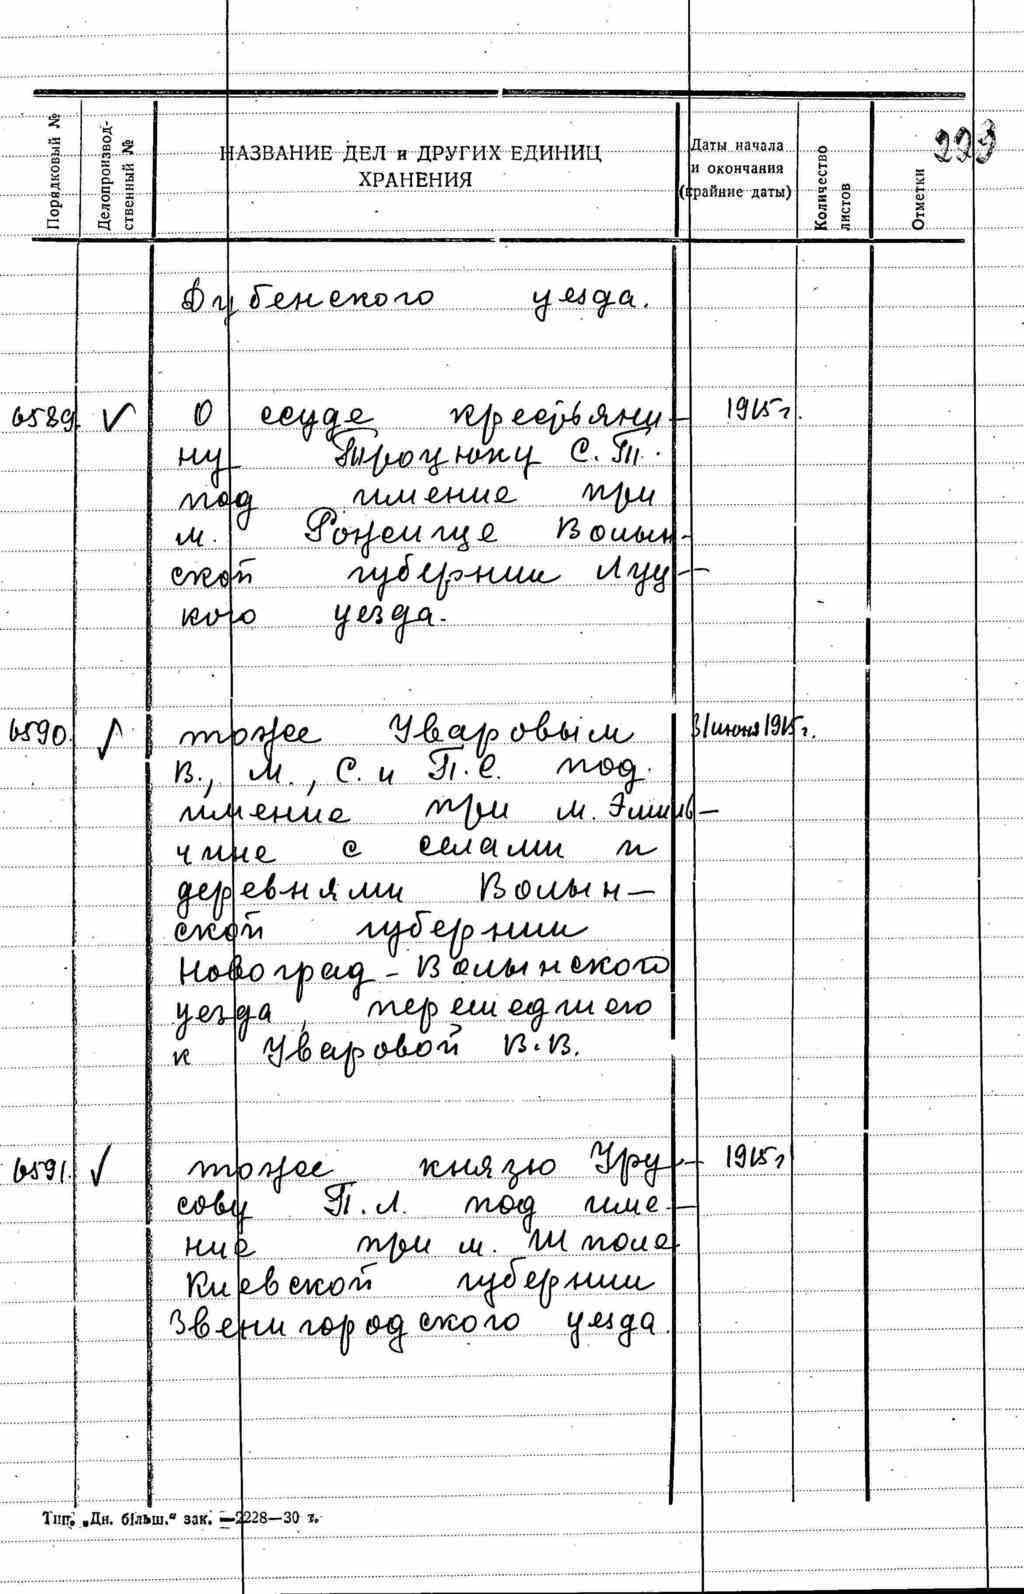 293
Порядковый №
Делопроизвод-
ственный №
НАЗВАНИЕ ДЕЛ и ДРУГИХ ЕДИНИЦ
ХРАНЕНИЯ
Даты начала
и окончания
(крайние даты)
Количество
листов
Отметки
Дубенского уезда.
6589. О ссуде крестьяни- 1915 г.
ну Троцюку С. Т.
под имение при
м. Рожище Волын-
ской губернии Луц-
кого уезда.
6590. тоже Уваровым 31 июня 1915 г.
В., М., С. и П. С. под
имение при м. Эмиль-
чине с селами и
деревнями Волын-
ской губернии
Новоград-Волынского
уезда, перешедшего
к Уваровой В. В.
6591. тоже князю Уру- 1915 г
сову П. Л. под име-
ние при м. Шпола
Киевской губернии
Звенигородского уезда.
Тип. „Дн. більш.“ зак. —2228—30 т.